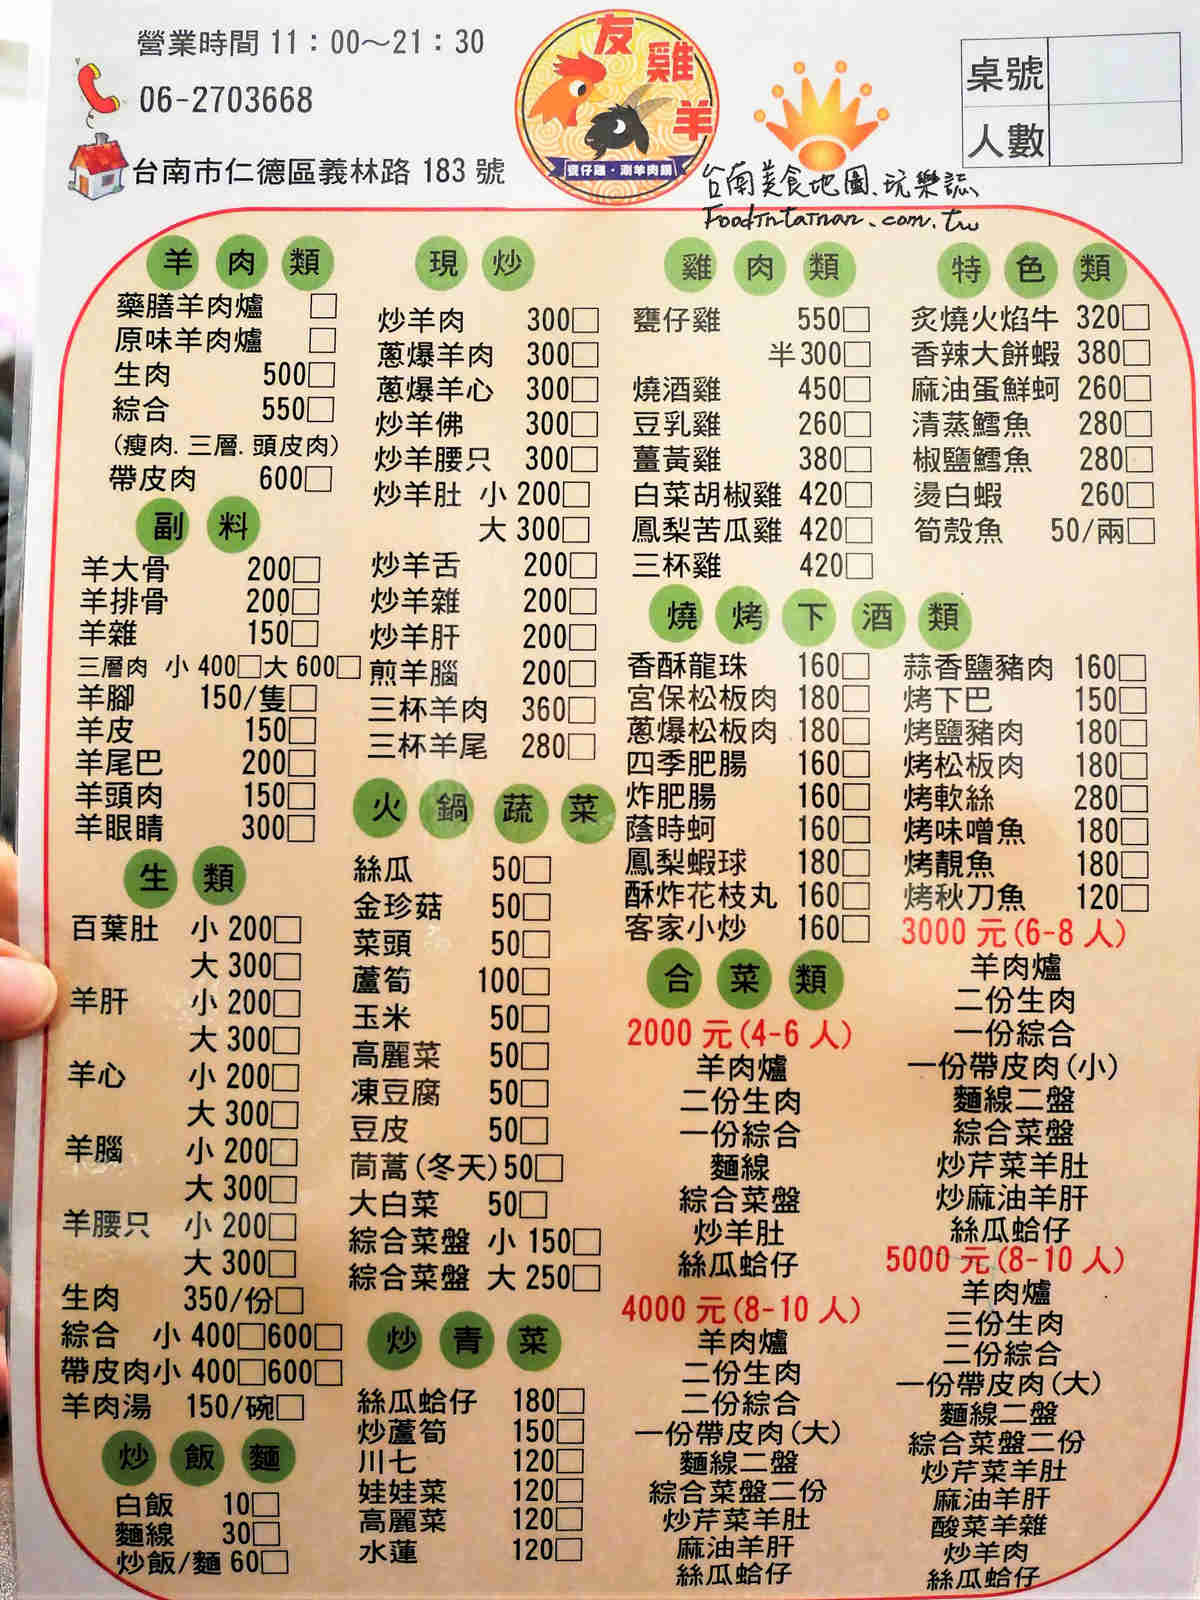 營業時間 11：00～21：30
06-2703668
台南市仁德區義林路 183 號
友雞羊
甕仔雞·涮羊肉鍋
台南美食地圖、玩樂誌
FoodInTainan.com.tw
桌號
人數
羊肉類
藥膳羊肉爐 □
原味羊肉爐 □
生肉 500□
綜合 550□
(瘦肉. 三層. 頭皮肉)
帶皮肉 600□
副料
羊大骨 200□
羊排骨 200□
羊雜 150□
三層肉 小 400□大 600□
羊腳 150/隻□
羊皮 150□
羊尾巴 200□
羊頭肉 150□
羊眼睛 300□
生類
百葉肚 小 200□
大 300□
羊肝 小 200□
大 300□
羊心 小 200□
大 300□
羊腦 小 200□
大 300□
羊腰只 小 200□
大 300□
生肉 350/份□
綜合 小 400□600□
帶皮肉小 400□600□
羊肉湯 150/碗□
炒飯麵
白飯 10□
麵線 30□
炒飯/麵 60□
現炒
炒羊肉 300□
蔥爆羊肉 300□
蔥爆羊心 300□
炒羊佛 300□
炒羊腰只 300□
炒羊肚 小 200□
大 300□
炒羊舌 200□
炒羊雜 200□
炒羊肝 200□
煎羊腦 200□
三杯羊肉 360□
三杯羊尾 280□
火鍋蔬菜
絲瓜 50□
金珍菇 50□
菜頭 50□
蘆筍 100□
玉米 50□
高麗菜 50□
凍豆腐 50□
豆皮 50□
茼蒿(冬天)50□
大白菜 50□
綜合菜盤 小 150□
綜合菜盤 大 250□
炒青菜
絲瓜蛤仔 180□
炒蘆筍 150□
川七 120□
娃娃菜 120□
高麗菜 120□
水蓮 120□
雞肉類
甕仔雞 550□
半 300□
燒酒雞 450□
豆乳雞 260□
薑黃雞 380□
白菜胡椒雞 420□
鳳梨苦瓜雞 420□
三杯雞 420□
特色類
炙燒火焰牛 320□
香辣大餅蝦 380□
麻油蛋鮮蚵 260□
清蒸鱈魚 280□
椒鹽鱈魚 280□
燙白蝦 260□
筍殼魚 50/兩□
燒烤下酒類
香酥龍珠 160□
宮保松板肉 180□
蔥爆松板肉 180□
四季肥腸 160□
炸肥腸 160□
蔭時蚵 160□
鳳梨蝦球 180□
酥炸花枝丸 160□
客家小炒 160□
蒜香鹽豬肉 160□
烤下巴 150□
烤鹽豬肉 180□
烤松板肉 180□
烤軟絲 280□
烤味噌魚 180□
烤靚魚 180□
烤秋刀魚 120□
合菜類
2000 元(4-6 人)
羊肉爐
二份生肉
一份綜合
麵線
綜合菜盤
炒羊肚
絲瓜蛤仔
4000 元(8-10 人)
羊肉爐
二份生肉
二份綜合
一份帶皮肉(大)
麵線二盤
綜合菜盤二份
炒芹菜羊肚
麻油羊肝
絲瓜蛤仔
3000 元(6-8 人)
羊肉爐
二份生肉
一份綜合
一份帶皮肉(小)
麵線二盤
綜合菜盤
炒芹菜羊肚
炒麻油羊肝
絲瓜蛤仔
5000 元(8-10 人)
羊肉爐
三份生肉
二份綜合
一份帶皮肉(大)
麵線二盤
綜合菜盤二份
炒芹菜羊肚
麻油羊肝
酸菜羊雜
炒羊肉
絲瓜蛤仔